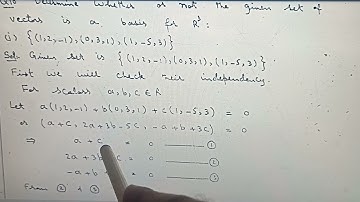 Determine whether or not the given set of
vectors is a basis for R³:
(i) {(1,2,-1),(0,3,1),(1,-5,3)}
Sol. Given set is {(1,2,-1),(0,3,1),(1,-5,3)}
First we will check their independency.
For scalars a,b,c ∈ R
Let a(1,2,-1)+b(0,3,1)+c(1,-5,3) = 0
or (a+c, 2a+3b-5c, -a+b+3c) = 0
⇒ a+c = 0 ——— ①
2a+3b c = 0 ——— ②
-a+b = 0 ——— ③
From ② & ③